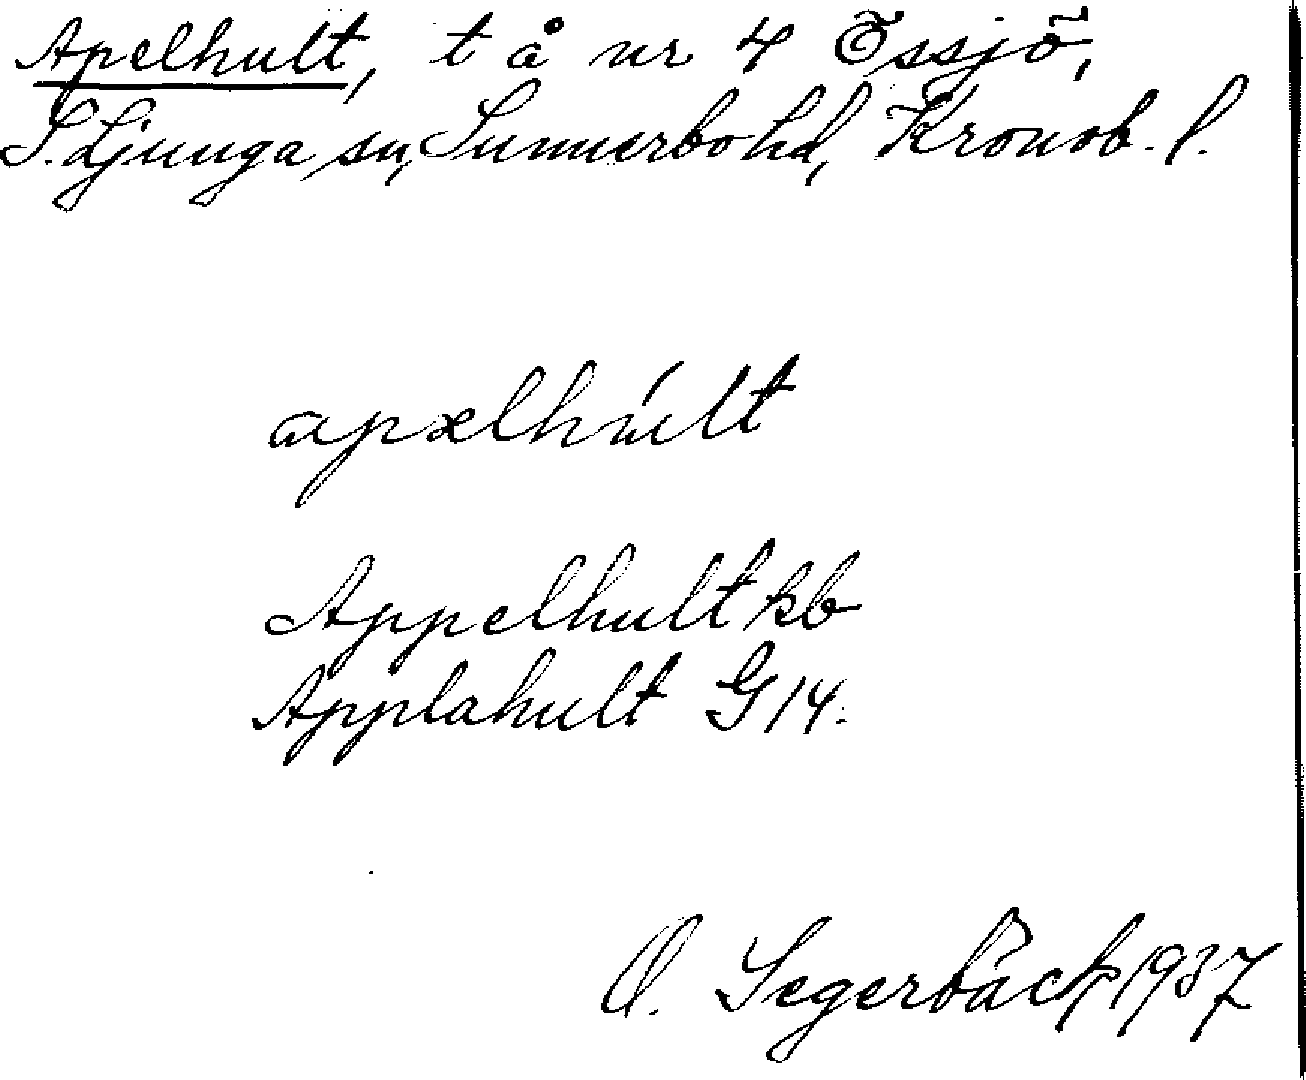 Apelhult, t å nr 4 Össjö,
S. Ljunga sn, Sunnerbo hd, Kronob. l.
apəlhúlt
Appelhult kb
Applahult G 14.
O. Segerbäck 1937